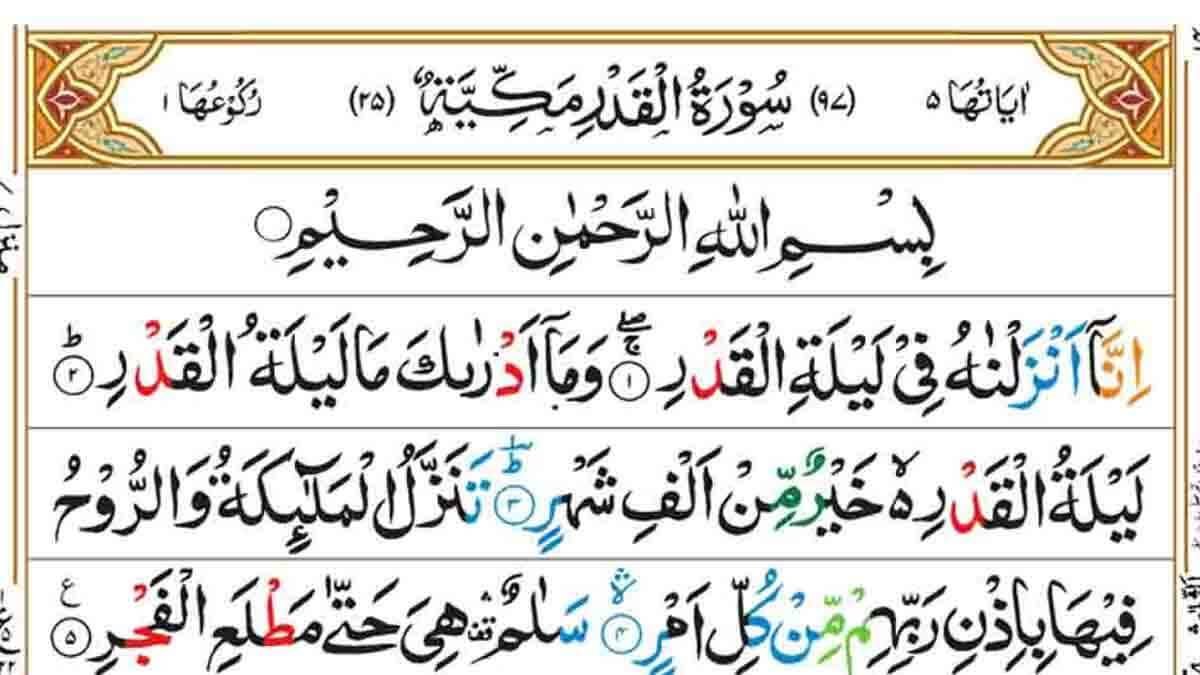 اٰيَاتُهَا ٥ (٩٧) سُوْرَةُ الْقَدْرِ مَكِّيَّةٌ (٢٥) رُكُوْعُهَا ١
بِسْمِ اللّٰهِ الرَّحْمٰنِ الرَّحِيْمِ
اِنَّاۤ اَنْزَلْنٰهُ فِىْ لَيْلَةِ الْقَدْرِ ۖۚ ١ وَمَاۤ اَدْرٰىكَ مَا لَيْلَةُ الْقَدْرِ ؕ ٢
لَيْلَةُ الْقَدْرِ ۙ۬ خَيْرٌ مِّنْ اَلْفِ شَهْرٍ ؕ ٣ تَنَزَّلُ الْمَلٰٓئِكَةُ وَالرُّوْحُ
فِيْهَا بِاِذْنِ رَبِّهِمْ مِّنْ كُلِّ اَمْرٍ ۛ ٤ سَلٰمٌ ۛ هِىَ حَتّٰى مَطْلَعِ الْفَجْرِ ٥ ع